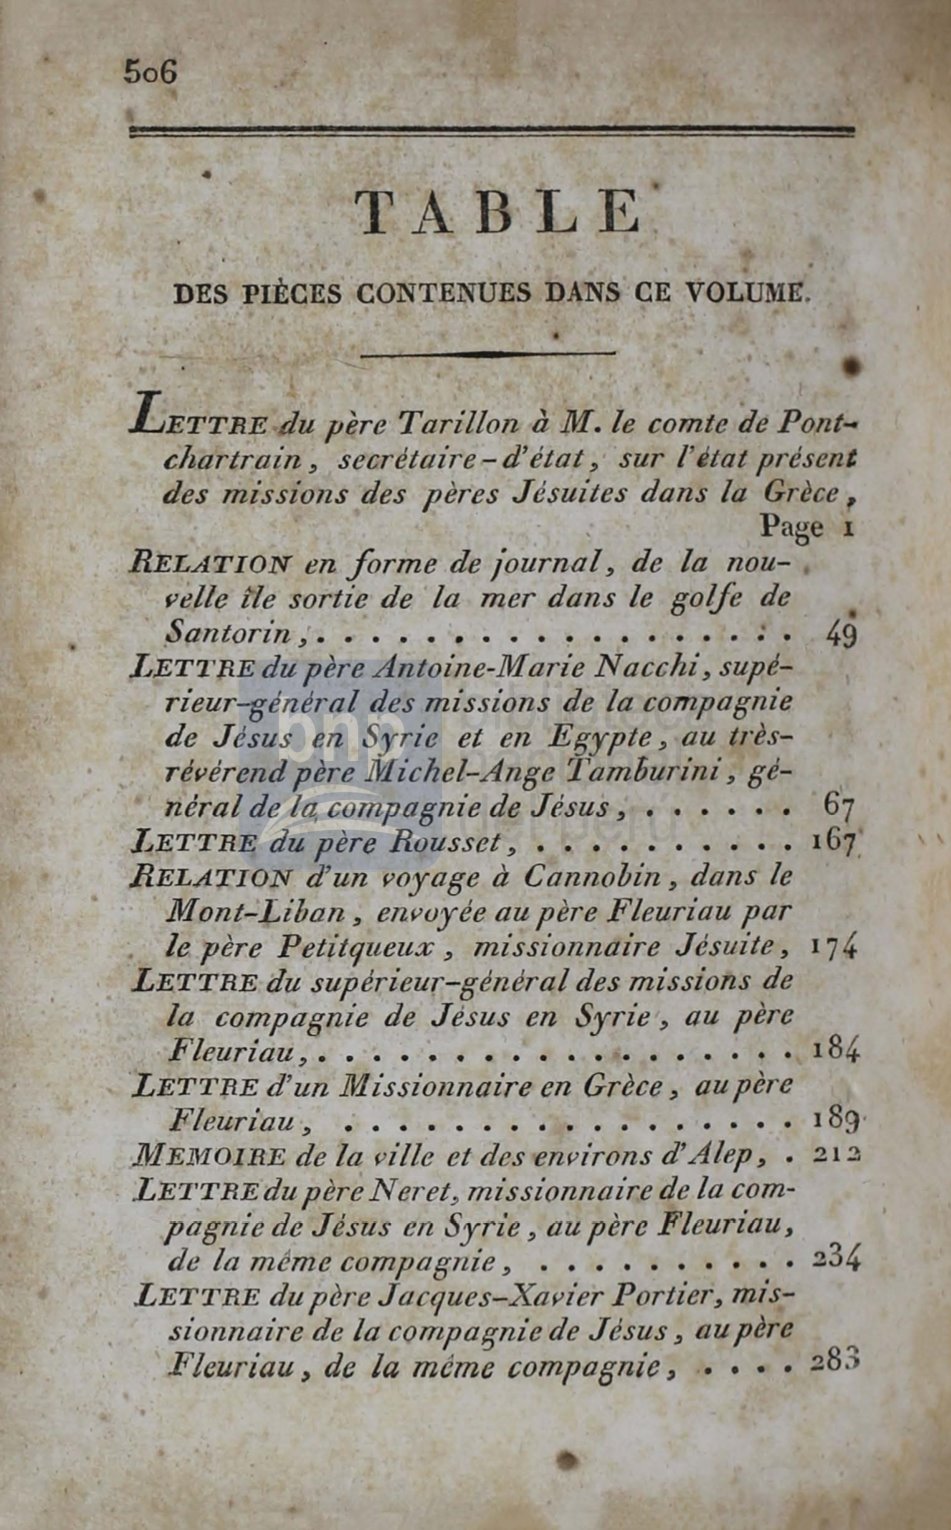 506
TABLE
DES PIÈCES CONTENUES DANS CE VOLUME.
LETTRE du père Tarillon à M. le comte de Pont-
chartrain, secrétaire-d'état, sur l'état présent
des missions des pères Jésuites dans la Grèce,
Page 1
RELATION en forme de journal, de la nou-
velle île sortie de la mer dans le golfe de
Santorin, . . . . . . . . . . . . . . . . . . 49
LETTRE du père Antoine-Marie Nacchi, supé-
rieur-général des missions de la compagnie
de Jésus en Syrie et en Egypte, au très-
révérend père Michel-Ange Tamburini, gé-
néral de la compagnie de Jésus, . . . . . . 67
LETTRE du père Rousset, . . . . . . . . . . 167
RELATION d'un voyage à Cannobin, dans le
Mont-Liban, envoyée au père Fleuriau par
le père Petitqueux, missionnaire Jésuite, 174
LETTRE du supérieur-général des missions de
la compagnie de Jésus en Syrie, au père
Fleuriau, . . . . . . . . . . . . . . . . . . 184
LETTRE d'un Missionnaire en Grèce, au père
Fleuriau, . . . . . . . . . . . . . . . . . 189
MEMOIRE de la ville et des environs d'Alep, . 212
LETTRE du père Neret, missionnaire de la com-
pagnie de Jésus en Syrie, au père Fleuriau,
de la même compagnie, . . . . . . . . . . 234
LETTRE du père Jacques-Xavier Portier, mis-
sionnaire de la compagnie de Jésus, au père
Fleuriau, de la même compagnie, . . . . 283